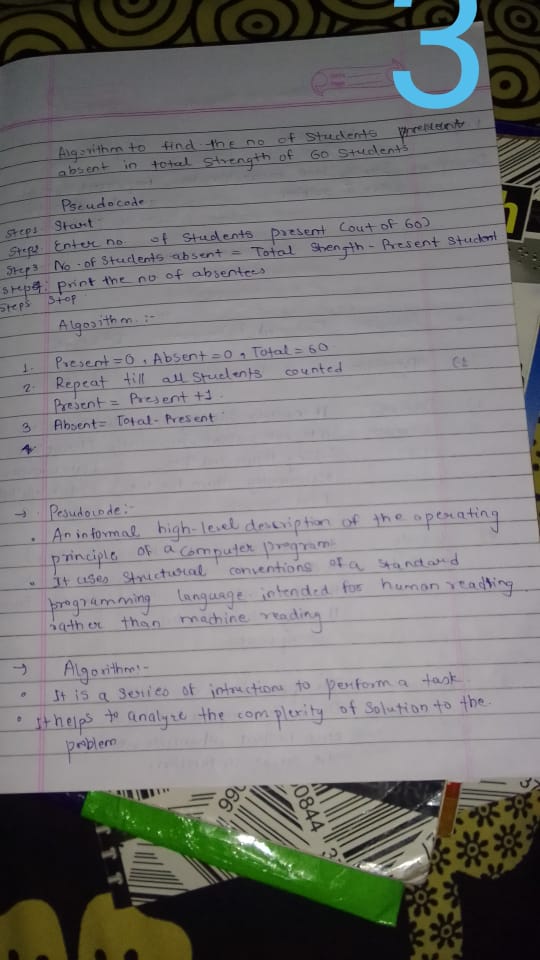 3
Algorithm to find the no of Students
absent in total Strength of 60 Students
Pseudocode
Step1 Start
Step2 Enter no. of Students present (out of 60)
Step3 No. of Students absent = Total Strength - Present Student
Step4: print the no of absentees
Step5 Stop
Algorithm :-
1. Present = 0, Absent = 0, Total = 60
2. Repeat till all Students counted
Present = Present +1
3 Absent = Total - Present
4
→ Pesudocode :-
• An informal high-level description of the operating
principle of a computer program
• It uses structural conventions of a standard
programming language intended for human reading
rather than machine reading
→ Algorithm :-
• It is a series of intructions to perform a task.
• It helps to analyze the complexity of Solution to the
problem
990
0844